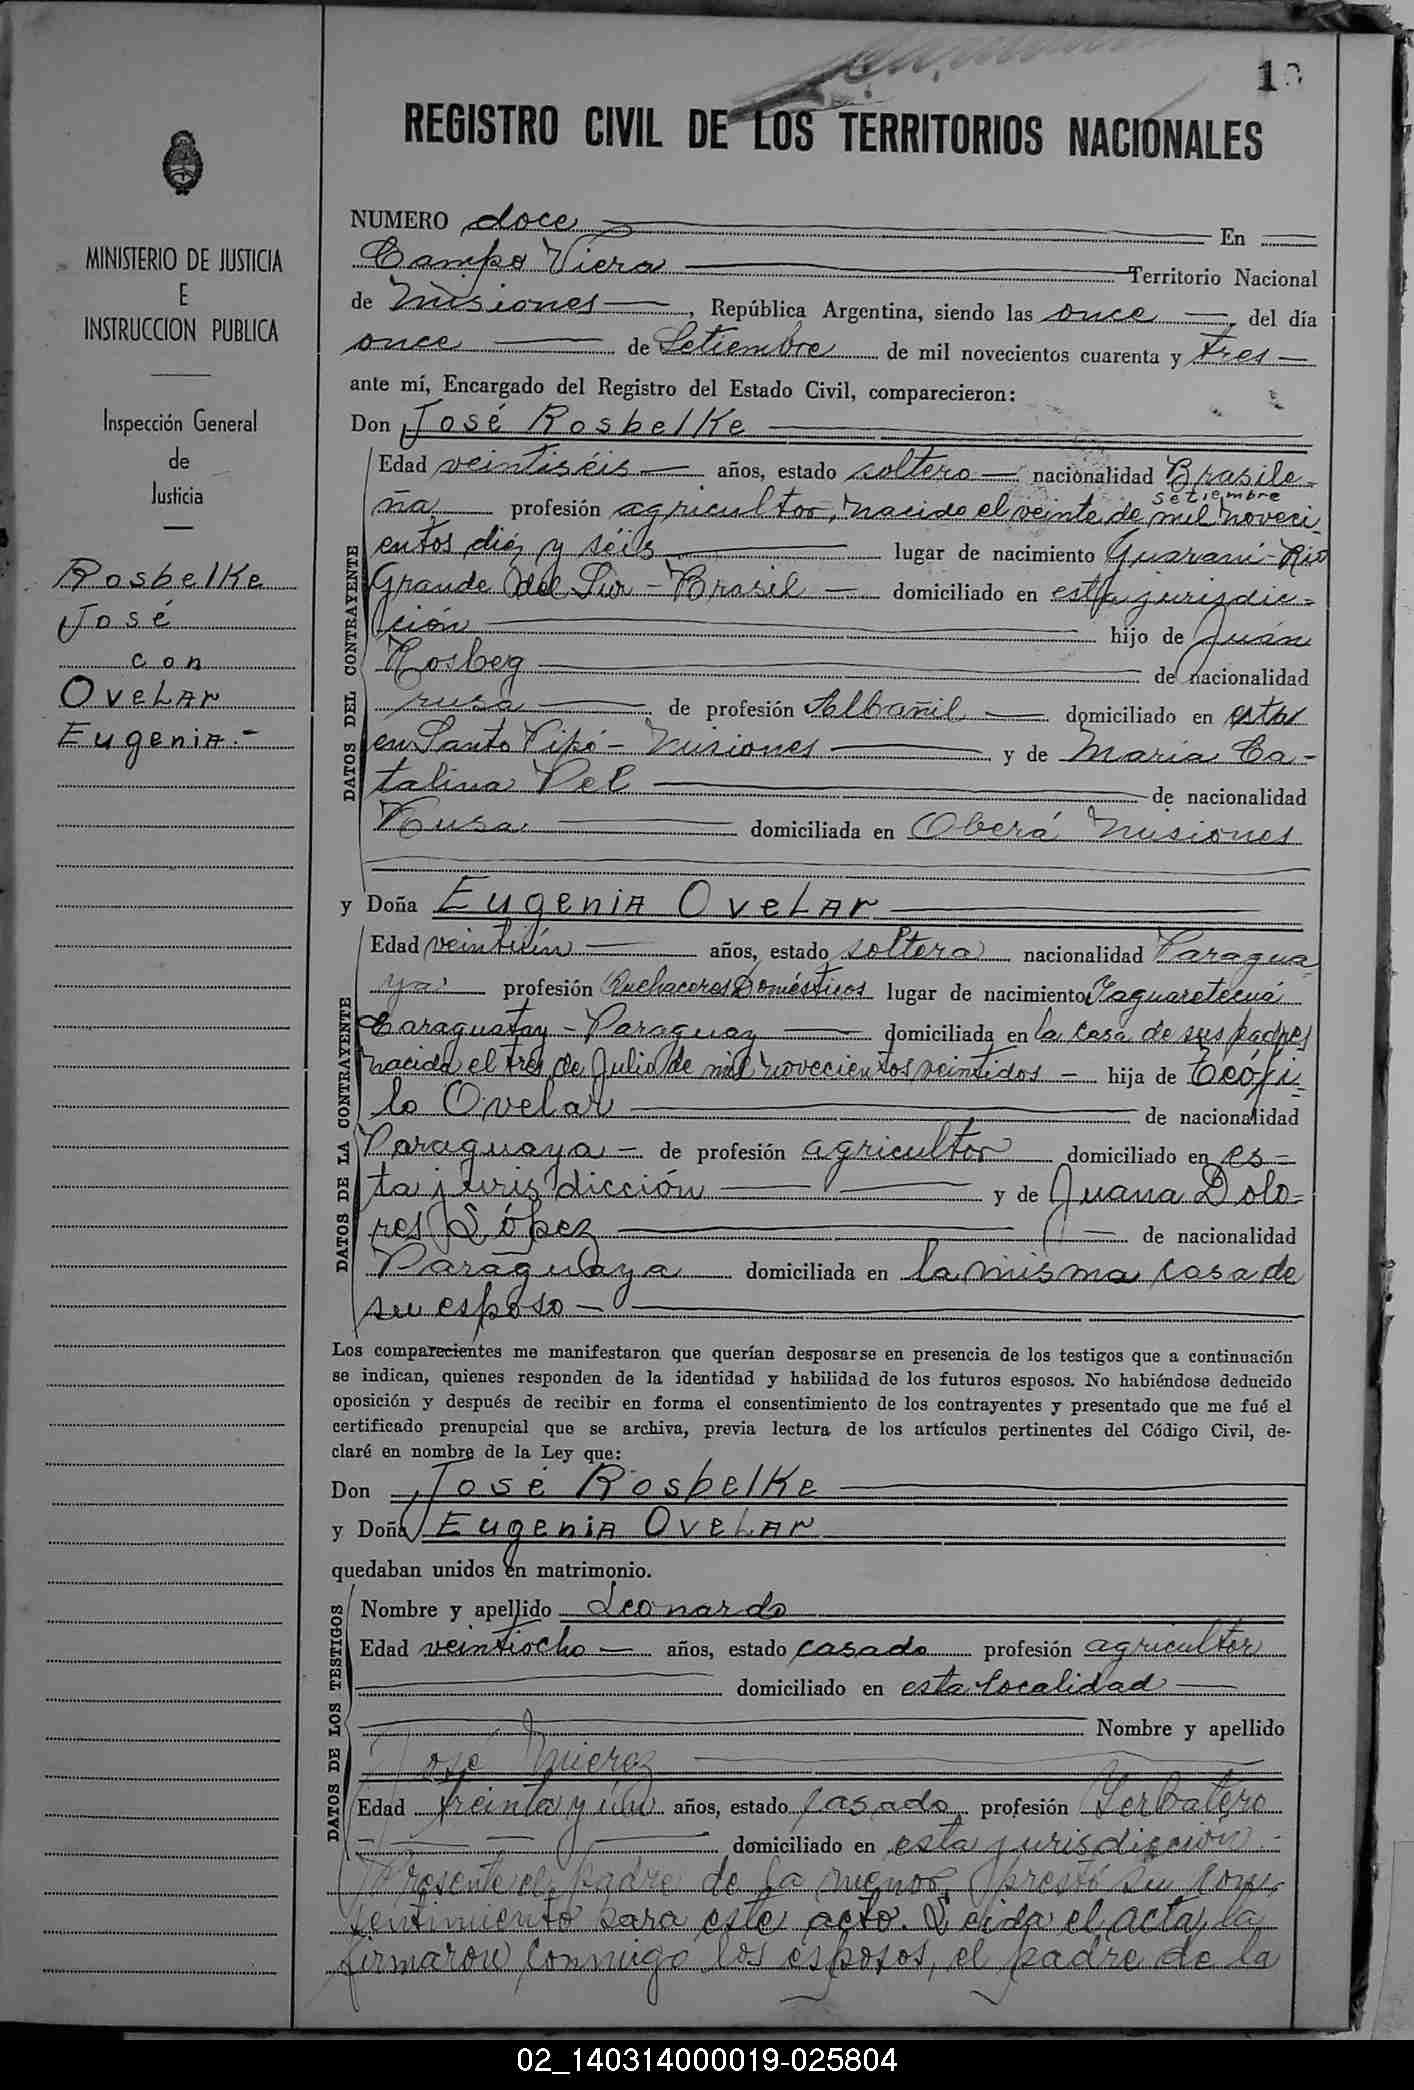 10
REGISTRO CIVIL DE LOS TERRITORIOS NACIONALES
MINISTERIO DE JUSTICIA
E
INSTRUCCION PUBLICA
Inspección General
de
Justicia
Rosbelke
José
con
Ovelar
Eugenia.-
NUMERO doce En
Campo Viera Territorio Nacional
de Misiones, República Argentina, siendo las once, del día
once de Setiembre de mil novecientos cuarenta y tres
ante mí, Encargado del Registro del Estado Civil, comparecieron:
Don José Rosbelke
DATOS DEL CONTRAYENTE
Edad veintiséis años, estado soltero nacionalidad Brasile-
setiembre
ña profesión agricultor, nacido el veinte de mil noveci
entos diéz y séis lugar de nacimiento Guaraní-Rio
Grande del Sur-Brasil domiciliado en esta jurisdic-
ción hijo de Juán
Rosberg de nacionalidad
rusa de profesión Albañil domiciliado en esta
en Santo Pipó-Misiones y de María Ca-
talina Pel de nacionalidad
Rusa domiciliada en Oberá Misiones
y Doña Eugenia Ovelar
DATOS DE LA CONTRAYENTE
Edad veintiún años, estado soltera nacionalidad Paragua
ya profesión Quehaceres Domésticos lugar de nacimiento Yaguaretecuá
Caraguatay-Paraguay domiciliada en la casa de sus padres
nacida el tres de Julio de mil novecientos veintidos - hija de Teófi-
lo Ovelar de nacionalidad
Paraguaya - de profesión agricultor domiciliado en es-
ta jurisdicción y de Juana Dolo-
res López de nacionalidad
Paraguaya domiciliada en la misma casa de
su esposo-
Los comparecientes me manifestaron que querían desposarse en presencia de los testigos que a continuación
se indican, quienes responden de la identidad y habilidad de los futuros esposos. No habiéndose deducido
oposición y después de recibir en forma el consentimiento de los contrayentes y presentado que me fué el
certificado prenupcial que se archiva, previa lectura de los artículos pertinentes del Código Civil, de-
claré en nombre de la Ley que:
Don José Rosbelke
y Doña Eugenia Ovelar
quedaban unidos en matrimonio.
DATOS DE LOS TESTIGOS
Nombre y apellido Leonardo
Edad veintiocho años, estado casado profesión agricultor
domiciliado en esta localidad
Nombre y apellido
José
Edad treinta y un años, estado casado profesión Yerbatero
domiciliado en esta jurisdicción.-
Presente el padre de la menor, prestó su con-
sentimiento para este acto. Leida el acta, la
firmaron conmigo los esposos, el padre de la
02_140314000019-025804